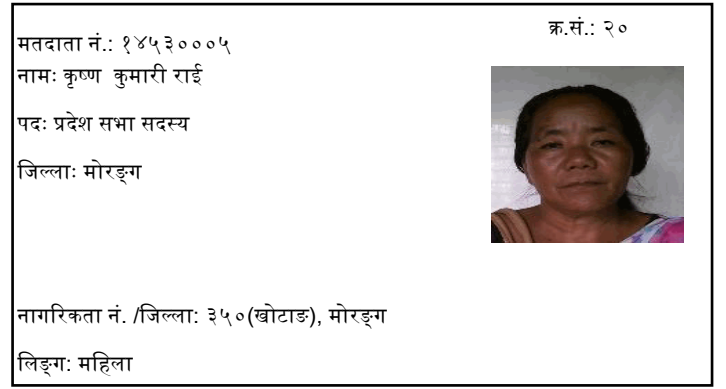 क्र.सं.: २०
मतदाता नं.: १४५३०००५
नामः कृष्ण कुमारी राई
पदः प्रदेश सभा सदस्य
जिल्लाः मोरङ्ग
नागरिकता नं. /जिल्ला: ३५०(खोटाङ), मोरङ्ग
लिङ्ग: महिला